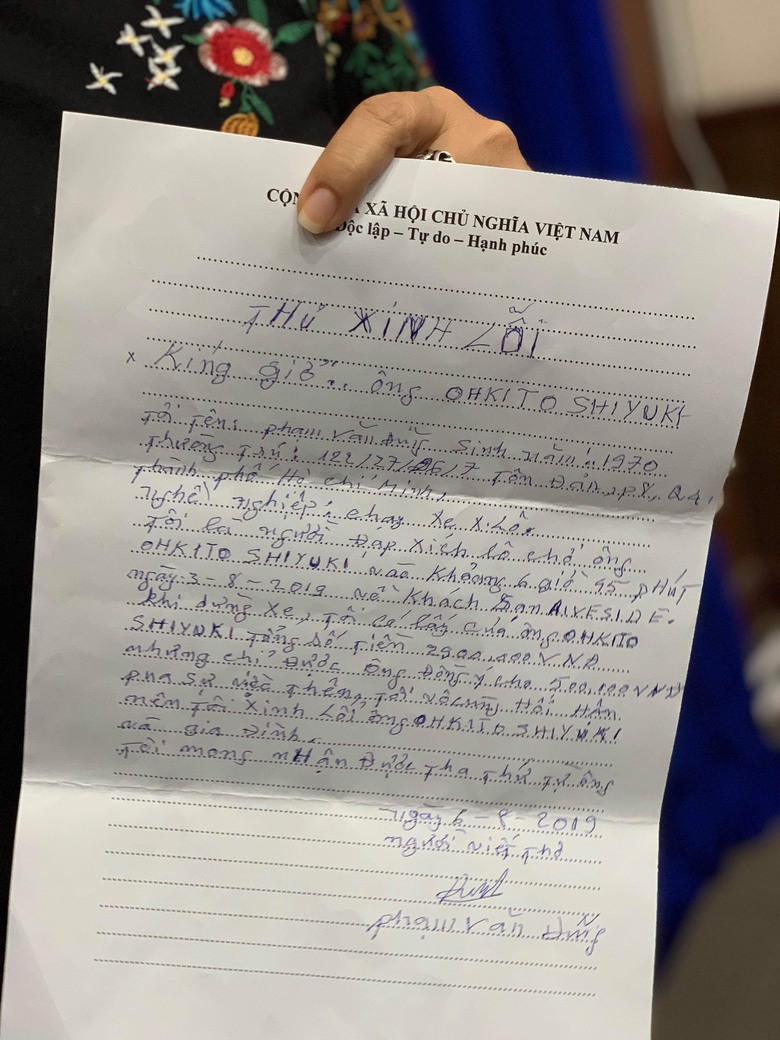 CỘN A XÃ HỘI CHỦ NGHĨA VIỆT NAM
Độc lập – Tự do – Hạnh phúc
THƯ XINH LỖI
x Kíng giở... ông OHKITO SHIYUKI
Tôi tên: phạm văn Dũng sinh năm: 1970
Thường trú: 122/27/26/7 Tôn Đản, p8, Q4,
thành phố Hồ Chí Minh,
Nghề nghiệp: chạy xe xí Lô.
Tôi là người Đạp xích lô chở ông
OHKITO SHIYUKI vào khoảng 6 giờ 45 phút
ngày 3-8-2019 về khách sạn RIVESIDE.
khi dừng xe, tôi có lấy của ông OHKITO
SHIYUKI tổng số tiền 2900.000 VND
nhưng chỉ được ông đồng ý cho 500.000 VND
qua sự việc trên, tôi vô cùng Hối Hận
nên tôi xinh Lỗi ông OHKITO SHIYUKI
và gia Đình.
Tôi mong nHận được tha thứ từ ông
ngày 6-8-2019
người viết thơ
phạm văn Dũng